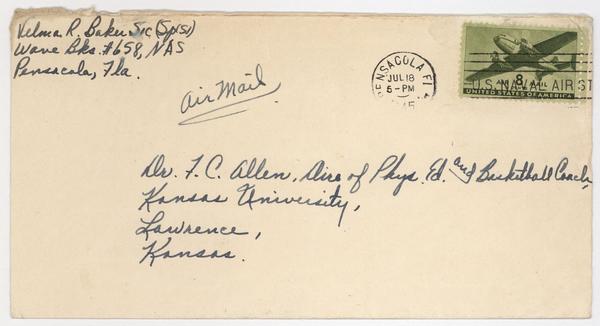 Velma R. Baker S1c (Sp.(S))
Wave Bks. #658, NAS
Pensacola, Fla.
Air Mail
PENSACOLA, FL
JUL 18
6-PM
U.S. NAVAL AIR ST
AIR 8¢ MAIL
UNITED STATES OF AMERICA
Dr. F. C. Allen, Dire of Phys. Ed. and Basketball Coach,
Kansas University,
Lawrence,
Kansas.